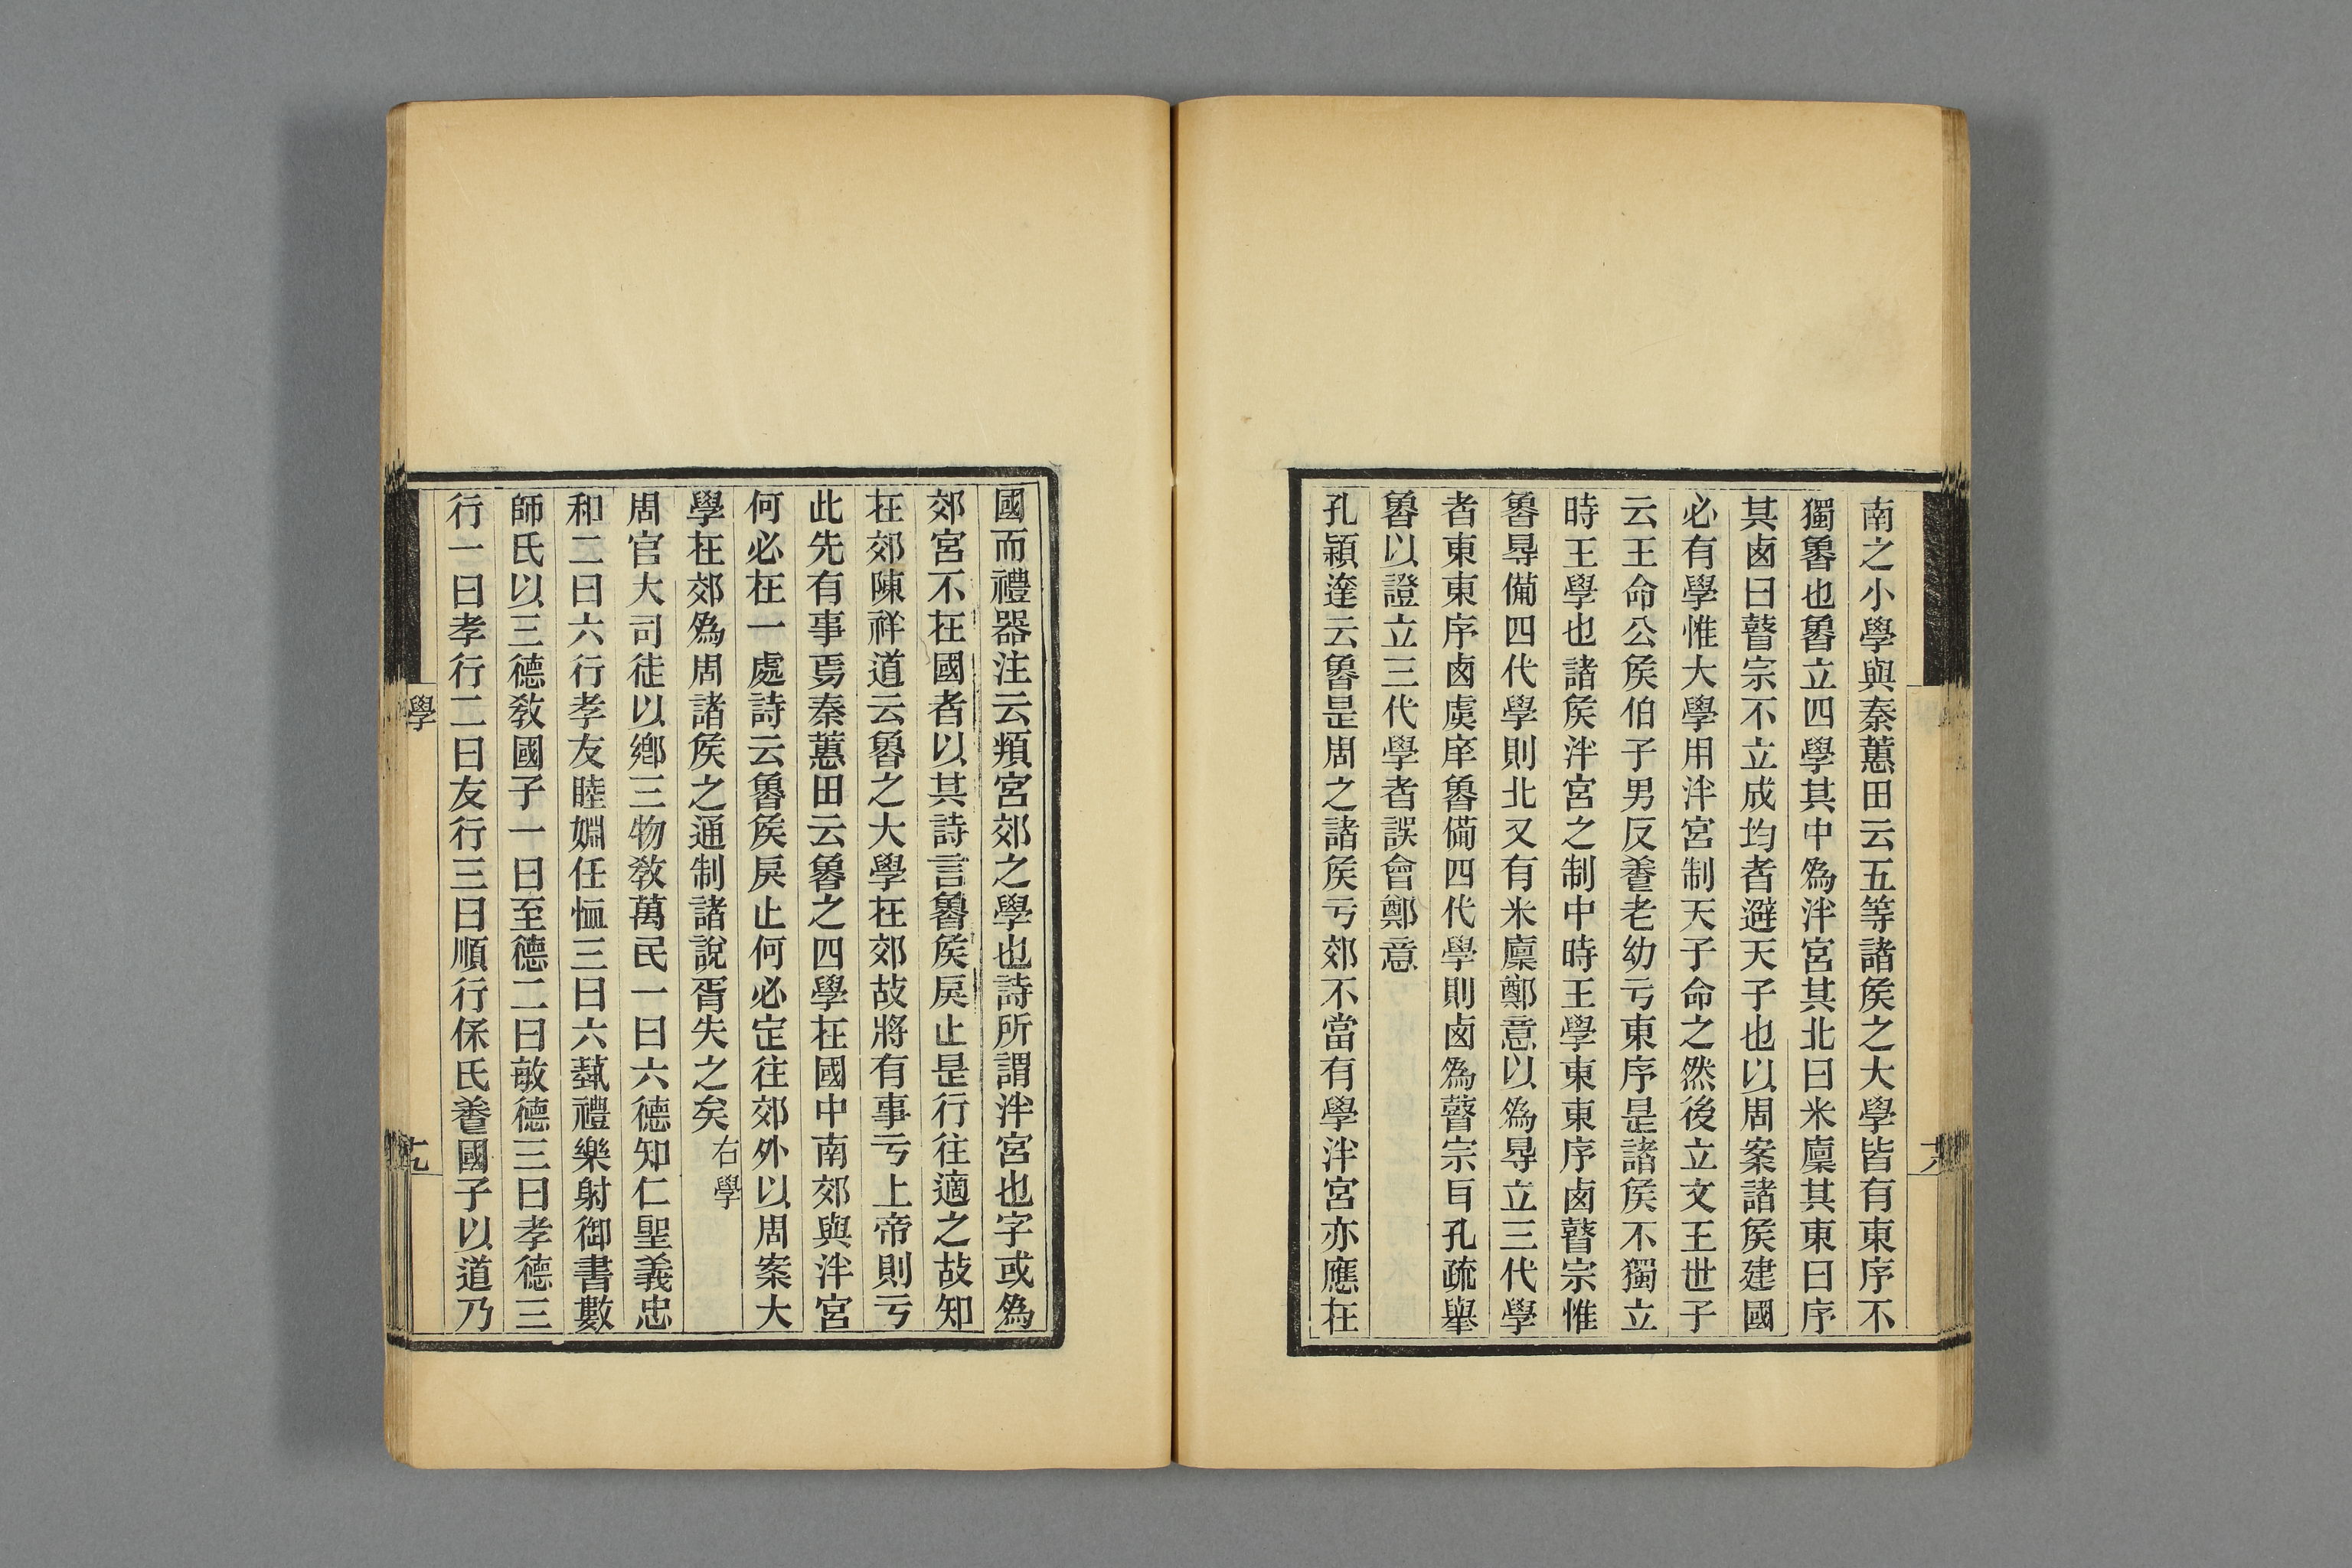 南之小學與秦蕙田云五等諸矦之大學皆有東序不
獨魯也魯立四學其中爲泮宮其北曰米廩其東曰序
其卤曰瞽宗不立成均者避天子也以周案諸矦建國
必有學惟大學用泮宮制天子命之然後立文王世子
云王命公矦伯子男反養老幼亏東序是諸矦不獨立
時王學也諸矦泮宮之制中時王學東東序卤瞽宗惟
魯㝵備四代學則北又有米廩鄭意以爲㝵立三代學
者東東序卤虞庠魯備四代學則卤爲瞽宗𦣞孔疏舉
魯以證立三代學者誤會鄭意
孔穎達云魯是周之諸矦亏郊不當有學泮宮亦應在
十八
國而禮器注云頖宮郊之學也詩所謂泮宮也字或爲
郊宮不在國者以其詩言魯矦戾止是行往適之故知
在郊陳祥道云魯之大學在郊故將有事亏上帝則亏
此先有事焉秦蕙田云魯之四學在國中南郊與泮宮
何必在一處詩云魯矦戾止何必定往郊外以周案大
學在郊爲周諸矦之通制諸說胥失之矣右學
周官大司徒以鄉三物敎萬民一曰六德知仁聖義忠
和二曰六行孝友睦婣任恤三曰六蓺禮樂射御書數
師氏以三德敎國子一曰至德二曰敏德三曰孝德三
行一曰孝行二曰友行三曰順行保氏養國子以道乃
學
十九